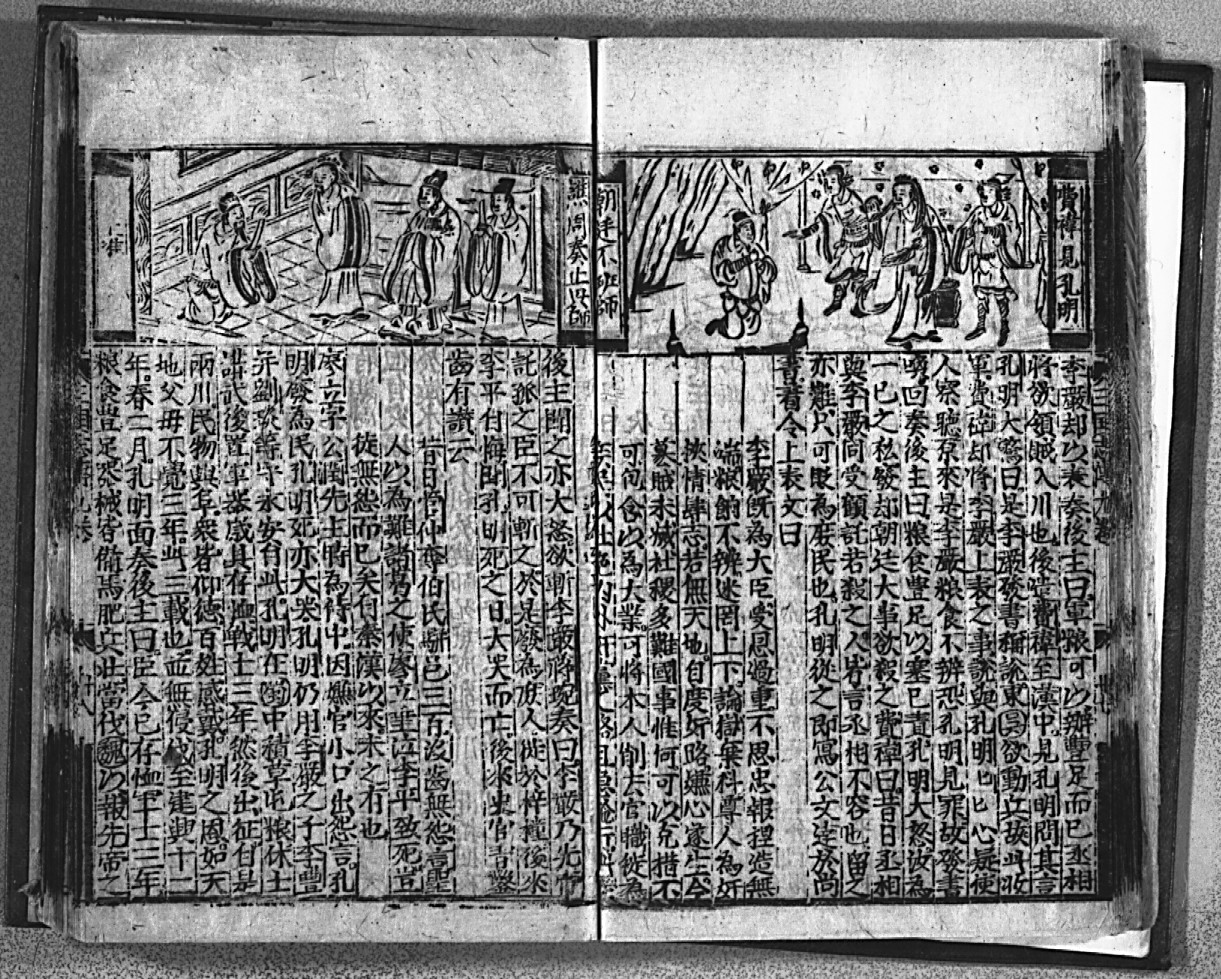 費禕見孔明
朝廷不班師
李嚴却以表奏後主曰軍粮可以辦豐足而巳丞相
將欲領賊入川也後造費禕至漢中見孔明問其言
孔明大驚曰是李嚴發書稱說東吳欲動兵故此收
軍費禕却將李嚴上表之事說與孔明巳心疑使
人察聽原來是李嚴粮食不辨恐孔明見罪故發書
喚回奏後主曰粮食豊足以塞巳責孔明大怒汝為
一巳之私發却朝廷大事欲殺之費禕曰昔日丞相
與李嚴同受顧託若殺之人皆言丞相不容也留之
亦難只可貶為庶民也孔明從之即寫公文達於尚
書看令上表文曰
李嚴旣為大臣受恩過重不思忠報捏造無
端粮餉不辨迷罔上下論獄棄科導人為奸
挾情肆志若無天地自度奸路嫌心遂生今
篡賊未滅社稷多難國事惟何可以克措不
可苟含以為大業可將木人削去官職徙為
譙周奏止出師
後主聞之亦大怒欲斬李嚴蔣琬奏曰李嚴乃先帝
託孤之臣不可斬之於是廢為庶人徙於梓橦後來
李平自悔聞孔明死之日大哭而亡後來史官習鑿
齒有讃云
昔日管仲奪伯氏駢邑三百沒齒無怨言聖
人以為難諸葛之使廖立垂泣李平致死豈
徒無怨而巳矣自秦漢以來未之有也
廖立字公淵先主時為侍中因嫌官小口出怨言孔
明廢為民孔明死亦大哭孔明仍用李嚴之子李豊
并劉琰等守永安自此孔明在蜀中積草屯粮休士
講武後置軍器咸具存恤戰士三年然後出征自是
兩川民物與阜衆皆仰德百姓感戴孔明之恩如天
地父母不覺三年此三載也並無侵伐至建興十一
年春二月孔明面奏後主曰臣今巳存恤軍士三年
粮食豊足器械皆備馬肥兵壯當伐魏以報先帝之